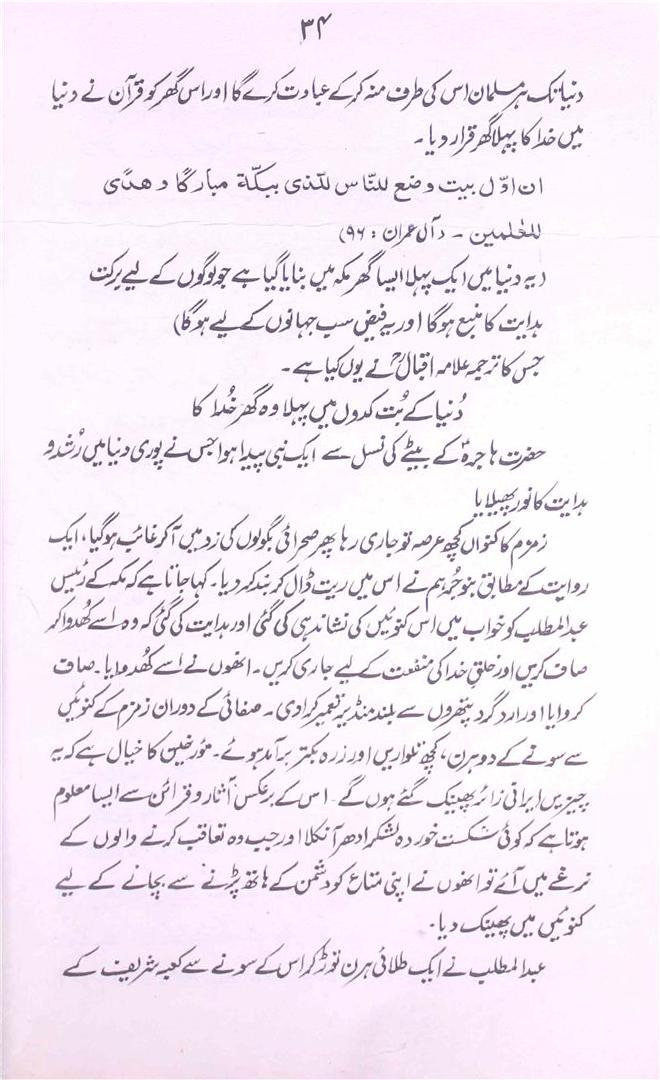 ۳۴
دنیا تک ہر مسلمان اس کی طرف منہ کر کے عبادت کرے گا اور اس گھر کو قرآن نے دنیا
میں خدا کا پہلا گھر قرار دیا۔
ان اوّل بیت وضع للنّاس للّذی ببکّۃ مبارکًا و ھدًی
للعٰلمین ۔ (آل عمران : ۹۶)
(یہ دنیا میں ایک پہلا ایسا گھر مکہ میں بنایا گیا ہے جو لوگوں کے لیے برکت
ہدایت کا منبع ہوگا اور یہ فیض سب جہانوں کے لیے ہوگا)
جس کا ترجمہ علامہ اقبالؒ نے یوں کیا ہے۔
دُنیا کے بُت کدوں میں پہلا وہ گھر خُدا کا
حضرت ہاجرہؑ کے بیٹے کی نسل سے ایک نبی پیدا ہوا جس نے پوری دنیا میں رُشد و
ہدایت کا نور پھیلایا
زمزم کا کنواں کچھ عرصہ تو جاری رہا پھر صحرائی بگولوں کی زد میں آ کر غائب ہوگیا، ایک
روایت کے مطابق بنو جُرہم نے اس میں ریت ڈال کر بند کر دیا۔ کہا جاتا ہے کہ مکہ کے رئیس
عبدالمطلب کو خواب میں اس کنوئیں کی نشاندہی کی گئی اور ہدایت کی گئی کہ وہ اسے کھُدوا کر
صاف کریں اور خلقِ خدا کی منفعت کے لیے جاری کریں۔ انھوں نے اسے کھُدوایا۔ صاف
کروایا اور ارد گرد پتھروں سے بلند منڈیر تعمیر کرا دی۔ صفائی کے دوران زمزم کے کنوئیں
سے سونے کے دو ہرن، کچھ تلواریں اور زرہ بکتر برآمد ہوئے۔ مؤرخین کا خیال ہے کہ یہ
چیزیں ایرانی زائر پھینک گئے ہوں گے۔ اس کے برعکس آثار و قرائن سے ایسا معلوم
ہوتا ہے کہ کوئی شکست خوردہ لشکر ادھر آ نکلا اور جب وہ تعاقب کرنے والوں کے
نرغے میں آئے تو انھوں نے اپنی متاع کو دشمن کے ہاتھ پڑنے سے بچانے کے لیے
کنوئیں میں پھینک دیا۔
عبدالمطلب نے ایک طلائی ہرن توڑ کر اس کے سونے سے کعبہ شریف کے